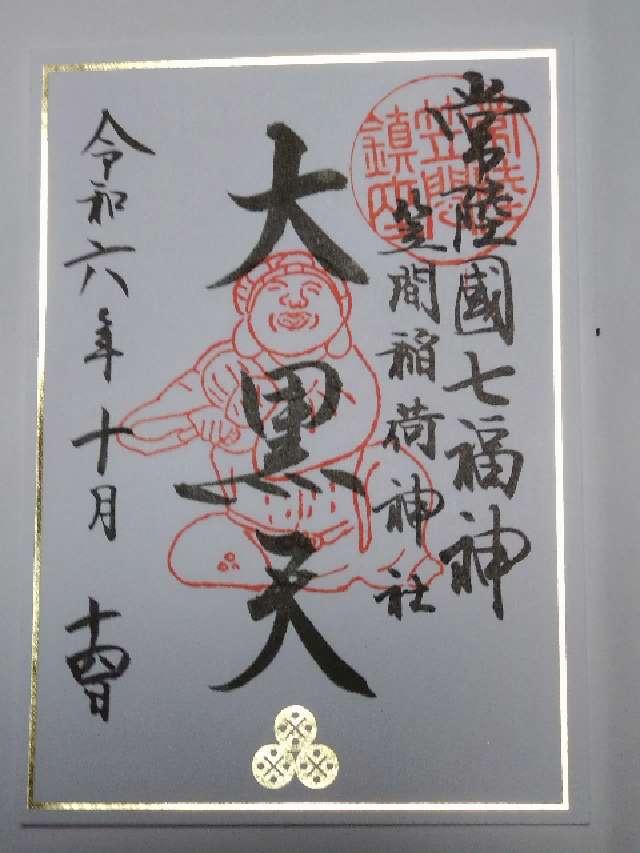 常陸國七福神
笠間稲荷神社
大黒天
令和六年十月十四日